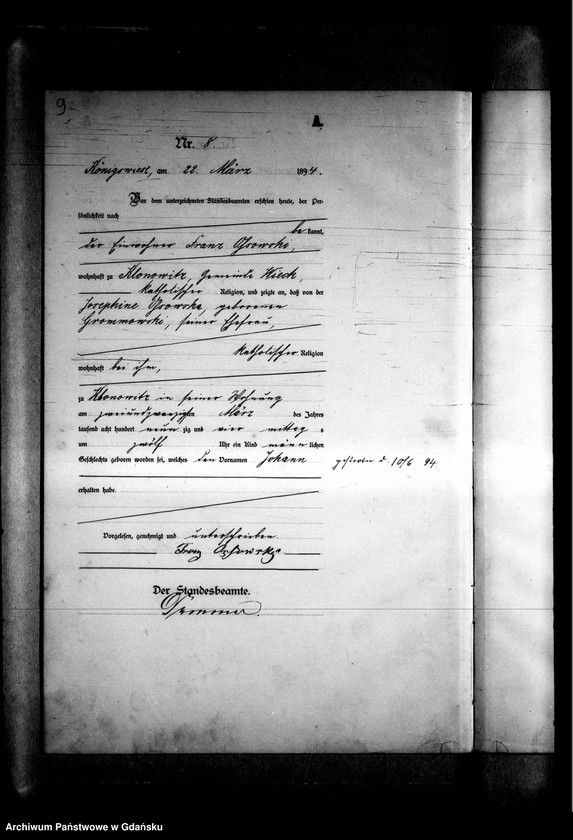 9
A.
Nr. 8.
Königswiese, am 22. März 1894.
Vor dem unterzeichneten Standesbeamten erschien heute, der Per-
sönlichkeit nach
be kannt,
der Einwohner Franz
wohnhaft zu Klonowitz, Gemeinde Wieck,
katholischer Religion, und zeigte an, daß von der
Josephine geborenen
seiner Ehefrau,
katholischer Religion
wohnhaft bei ihm,
zu Klonowitz in seiner Wohnung
am zweiundzwanzigsten März des Jahres
tausend acht hundert neun zig und vier mittag s
um zwölf Uhr ein Kind männ lichen
Geschlechts geboren worden sei, welches den Vornamen Johann
gestorben d. 10/6 94.
erhalten habe.
Vorgelesen, genehmigt und unterschrieben
Franz
Der Standesbeamte.
Archiwum Państwowe w Gdańsku